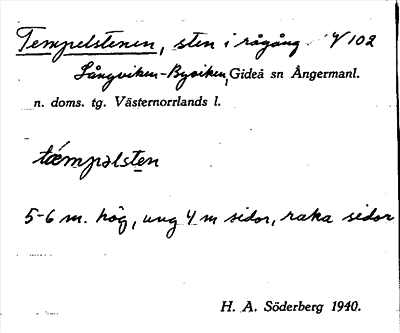 Tempelstenen, sten i rågång V 102
Långviken-Byviken, Gideå sn Ångermanl.
n. doms. tg. Västernorrlands l.
tæ̀mpəlsten
5-6 m. hög, ung 4 m sidor, raka sidor
H. A. Söderberg 1940.